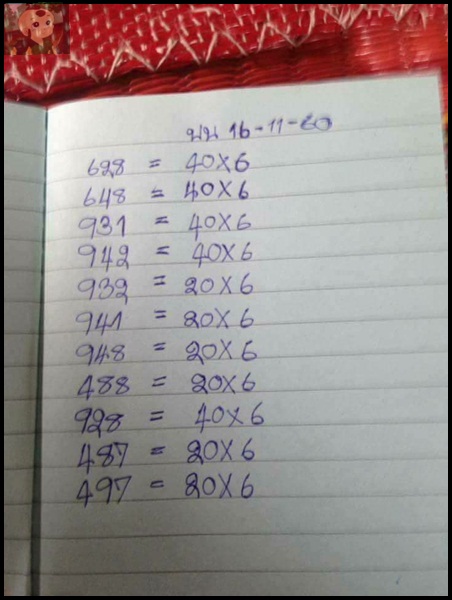 บน 16-11-60
628 = 40X6
648 = 40X6
931 = 40X6
942 = 40X6
932 = 20X6
941 = 20X6
948 = 20X6
488 = 20X6
928 = 40X6
487 = 20X6
497 = 20X6